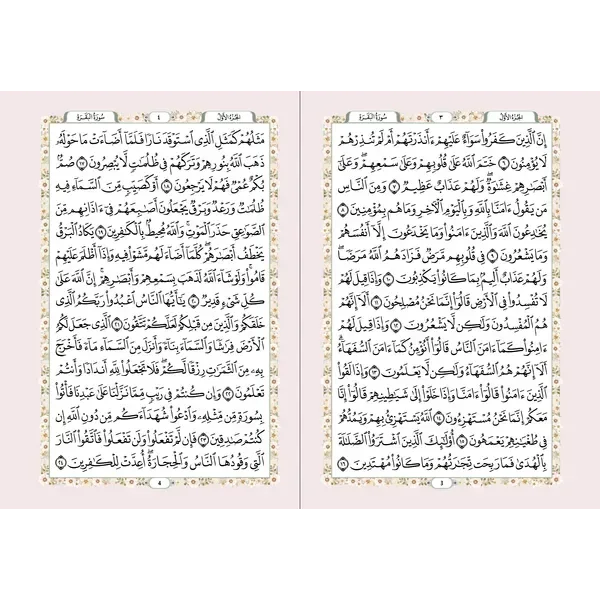 سُورَةُ البَقَرَة
٣
الجُزْءُ الأَوَّل
إِنَّ ٱلَّذِينَ كَفَرُواْ سَوَآءٌ عَلَيْهِمْ ءَأَنذَرْتَهُمْ أَمْ لَمْ تُنذِرْهُمْ
لَا يُؤْمِنُونَ ٦ خَتَمَ ٱللَّهُ عَلَىٰ قُلُوبِهِمْ وَعَلَىٰ سَمْعِهِمْ وَعَلَىٰٓ
أَبْصَٰرِهِمْ غِشَٰوَةٌ وَلَهُمْ عَذَابٌ عَظِيمٌ ٧ وَمِنَ ٱلنَّاسِ
مَن يَقُولُ ءَامَنَّا بِٱللَّهِ وَبِٱلْيَوْمِ ٱلْءَاخِرِ وَمَا هُم بِمُؤْمِنِينَ ٨
يُخَٰدِعُونَ ٱللَّهَ وَٱلَّذِينَ ءَامَنُواْ وَمَا يَخْدَعُونَ إِلَّآ أَنفُسَهُمْ
وَمَا يَشْعُرُونَ ٩ فِى قُلُوبِهِم مَّرَضٌ فَزَادَهُمُ ٱللَّهُ مَرَضًا
وَلَهُمْ عَذَابٌ أَلِيمٌۢ بِمَا كَانُواْ يَكْذِبُونَ ١٠ وَإِذَا قِيلَ لَهُمْ
لَا تُفْسِدُواْ فِى ٱلْأَرْضِ قَالُوٓاْ إِنَّمَا نَحْنُ مُصْلِحُونَ ١١ أَلَآ إِنَّهُمْ
هُمُ ٱلْمُفْسِدُونَ وَلَٰكِن لَّا يَشْعُرُونَ ١٢ وَإِذَا قِيلَ لَهُمْ
ءَامِنُواْ كَمَآ ءَامَنَ ٱلنَّاسُ قَالُوٓاْ أَنُؤْمِنُ كَمَآ ءَامَنَ ٱلسُّفَهَآءُ
أَلَآ إِنَّهُمْ هُمُ ٱلسُّفَهَآءُ وَلَٰكِن لَّا يَعْلَمُونَ ١٣ وَإِذَا لَقُواْ
ٱلَّذِينَ ءَامَنُواْ قَالُوٓاْ ءَامَنَّا وَإِذَا خَلَوْاْ إِلَىٰ شَيَٰطِينِهِمْ قَالُوٓاْ إِنَّا
مَعَكُمْ إِنَّمَا نَحْنُ مُسْتَهْزِءُونَ ١٤ ٱللَّهُ يَسْتَهْزِئُ بِهِمْ وَيَمُدُّهُمْ
فِى طُغْيَٰنِهِمْ يَعْمَهُونَ ١٥ أُوْلَٰٓئِكَ ٱلَّذِينَ ٱشْتَرَوُاْ ٱلضَّلَٰلَةَ
بِٱلْهُدَىٰ فَمَا رَبِحَت تِّجَٰرَتُهُمْ وَمَا كَانُواْ مُهْتَدِينَ ١٦
3
سُورَةُ البَقَرَة
٤
الجُزْءُ الأَوَّل
مَثَلُهُمْ كَمَثَلِ ٱلَّذِى ٱسْتَوْقَدَ نَارًا فَلَمَّآ أَضَآءَتْ مَا حَوْلَهُۥ
ذَهَبَ ٱللَّهُ بِنُورِهِمْ وَتَرَكَهُمْ فِى ظُلُمَٰتٍ لَّا يُبْصِرُونَ ١٧ صُمٌّۢ
بُكْمٌ عُمْىٌ فَهُمْ لَا يَرْجِعُونَ ١٨ أَوْ كَصَيِّبٍ مِّنَ ٱلسَّمَآءِ فِيهِ
ظُلُمَٰتٌ وَرَعْدٌ وَبَرْقٌ يَجْعَلُونَ أَصَٰبِعَهُمْ فِىٓ ءَاذَانِهِم مِّنَ
ٱلصَّوَٰعِقِ حَذَرَ ٱلْمَوْتِ وَٱللَّهُ مُحِيطٌۢ بِٱلْكَٰفِرِينَ ١٩ يَكَادُ ٱلْبَرْقُ
يَخْطَفُ أَبْصَٰرَهُمْ كُلَّمَآ أَضَآءَ لَهُم مَّشَوْاْ فِيهِ وَإِذَآ أَظْلَمَ عَلَيْهِمْ
قَامُواْ وَلَوْ شَآءَ ٱللَّهُ لَذَهَبَ بِسَمْعِهِمْ وَأَبْصَٰرِهِمْ إِنَّ ٱللَّهَ عَلَىٰ
كُلِّ شَىْءٍ قَدِيرٌ ٢٠ يَٰٓأَيُّهَا ٱلنَّاسُ ٱعْبُدُواْ رَبَّكُمُ ٱلَّذِى
خَلَقَكُمْ وَٱلَّذِينَ مِن قَبْلِكُمْ لَعَلَّكُمْ تَتَّقُونَ ٢١ ٱلَّذِى جَعَلَ لَكُمُ
ٱلْأَرْضَ فِرَٰشًا وَٱلسَّمَآءَ بِنَآءً وَأَنزَلَ مِنَ ٱلسَّمَآءِ مَآءً فَأَخْرَجَ
بِهِۦ مِنَ ٱلثَّمَرَٰتِ رِزْقًا لَّكُمْ فَلَا تَجْعَلُواْ لِلَّهِ أَندَادًا وَأَنتُمْ
تَعْلَمُونَ ٢٢ وَإِن كُنتُمْ فِى رَيْبٍ مِّمَّا نَزَّلْنَا عَلَىٰ عَبْدِنَا فَأْتُواْ
بِسُورَةٍ مِّن مِّثْلِهِۦ وَٱدْعُواْ شُهَدَآءَكُم مِّن دُونِ ٱللَّهِ إِن
كُنتُمْ صَٰدِقِينَ ٢٣ فَإِن لَّمْ تَفْعَلُواْ وَلَن تَفْعَلُواْ فَٱتَّقُواْ ٱلنَّارَ
ٱلَّتِى وَقُودُهَا ٱلنَّاسُ وَٱلْحِجَارَةُ أُعِدَّتْ لِلْكَٰفِرِينَ ٢٤
4